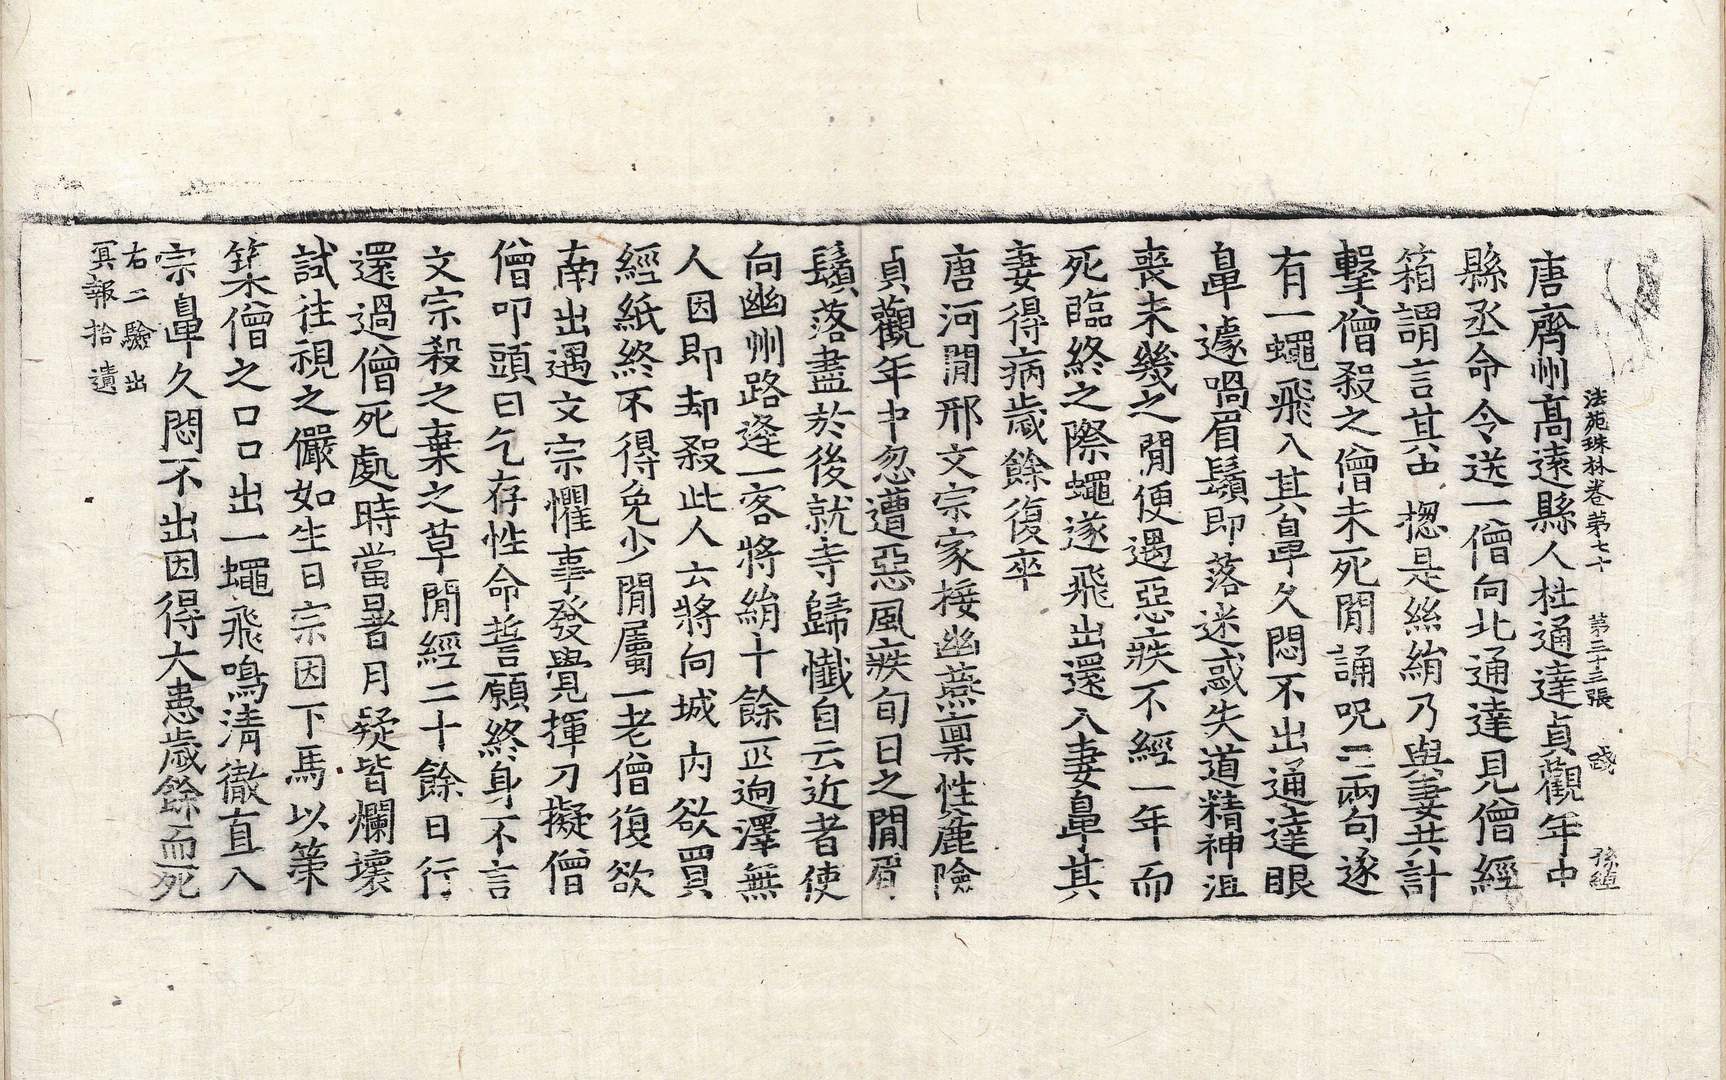 法苑珠林卷第七十　第三十三張　㦮　孫綽
唐齊州高逺縣人杜通達貞觀年中
縣丞命令送一僧向北通達見僧經
箱謂言其中揔是絲絹乃與妻共計
擊僧殺之僧未死閒誦呪三兩句遂
有一蠅飛入其鼻久悶不出通達眼
鼻遽喎眉鬚即落迷惑失道精神沮
喪未幾之閒便遇惡疾不經一年而
死臨終之際蠅遂飛出還入妻鼻其
妻得病歲餘復卒
唐河閒邢文宗家接幽燕稟性麁險
貞觀年中忽遭惡風疾旬日之閒眉
鬚落盡於後就寺歸懺自云近者使
向幽州路逢一客將絹十餘匹迥澤無
人因即却殺此人云將向城內欲買
經紙終不得免少閒屬一老僧復欲
南出遇文宗懼事發覺揮刀擬僧
僧叩頭曰乞存性命誓願終身不言
文宗殺之棄之草閒經二十餘日行
還過僧死處時當暑月疑皆爛壞
試往視之儼如生日宗因下馬以策
築僧之口口出一蠅飛鳴清徹直入
宗鼻久悶不出因得大患歲餘而死
右二驗出
冥報拾遺